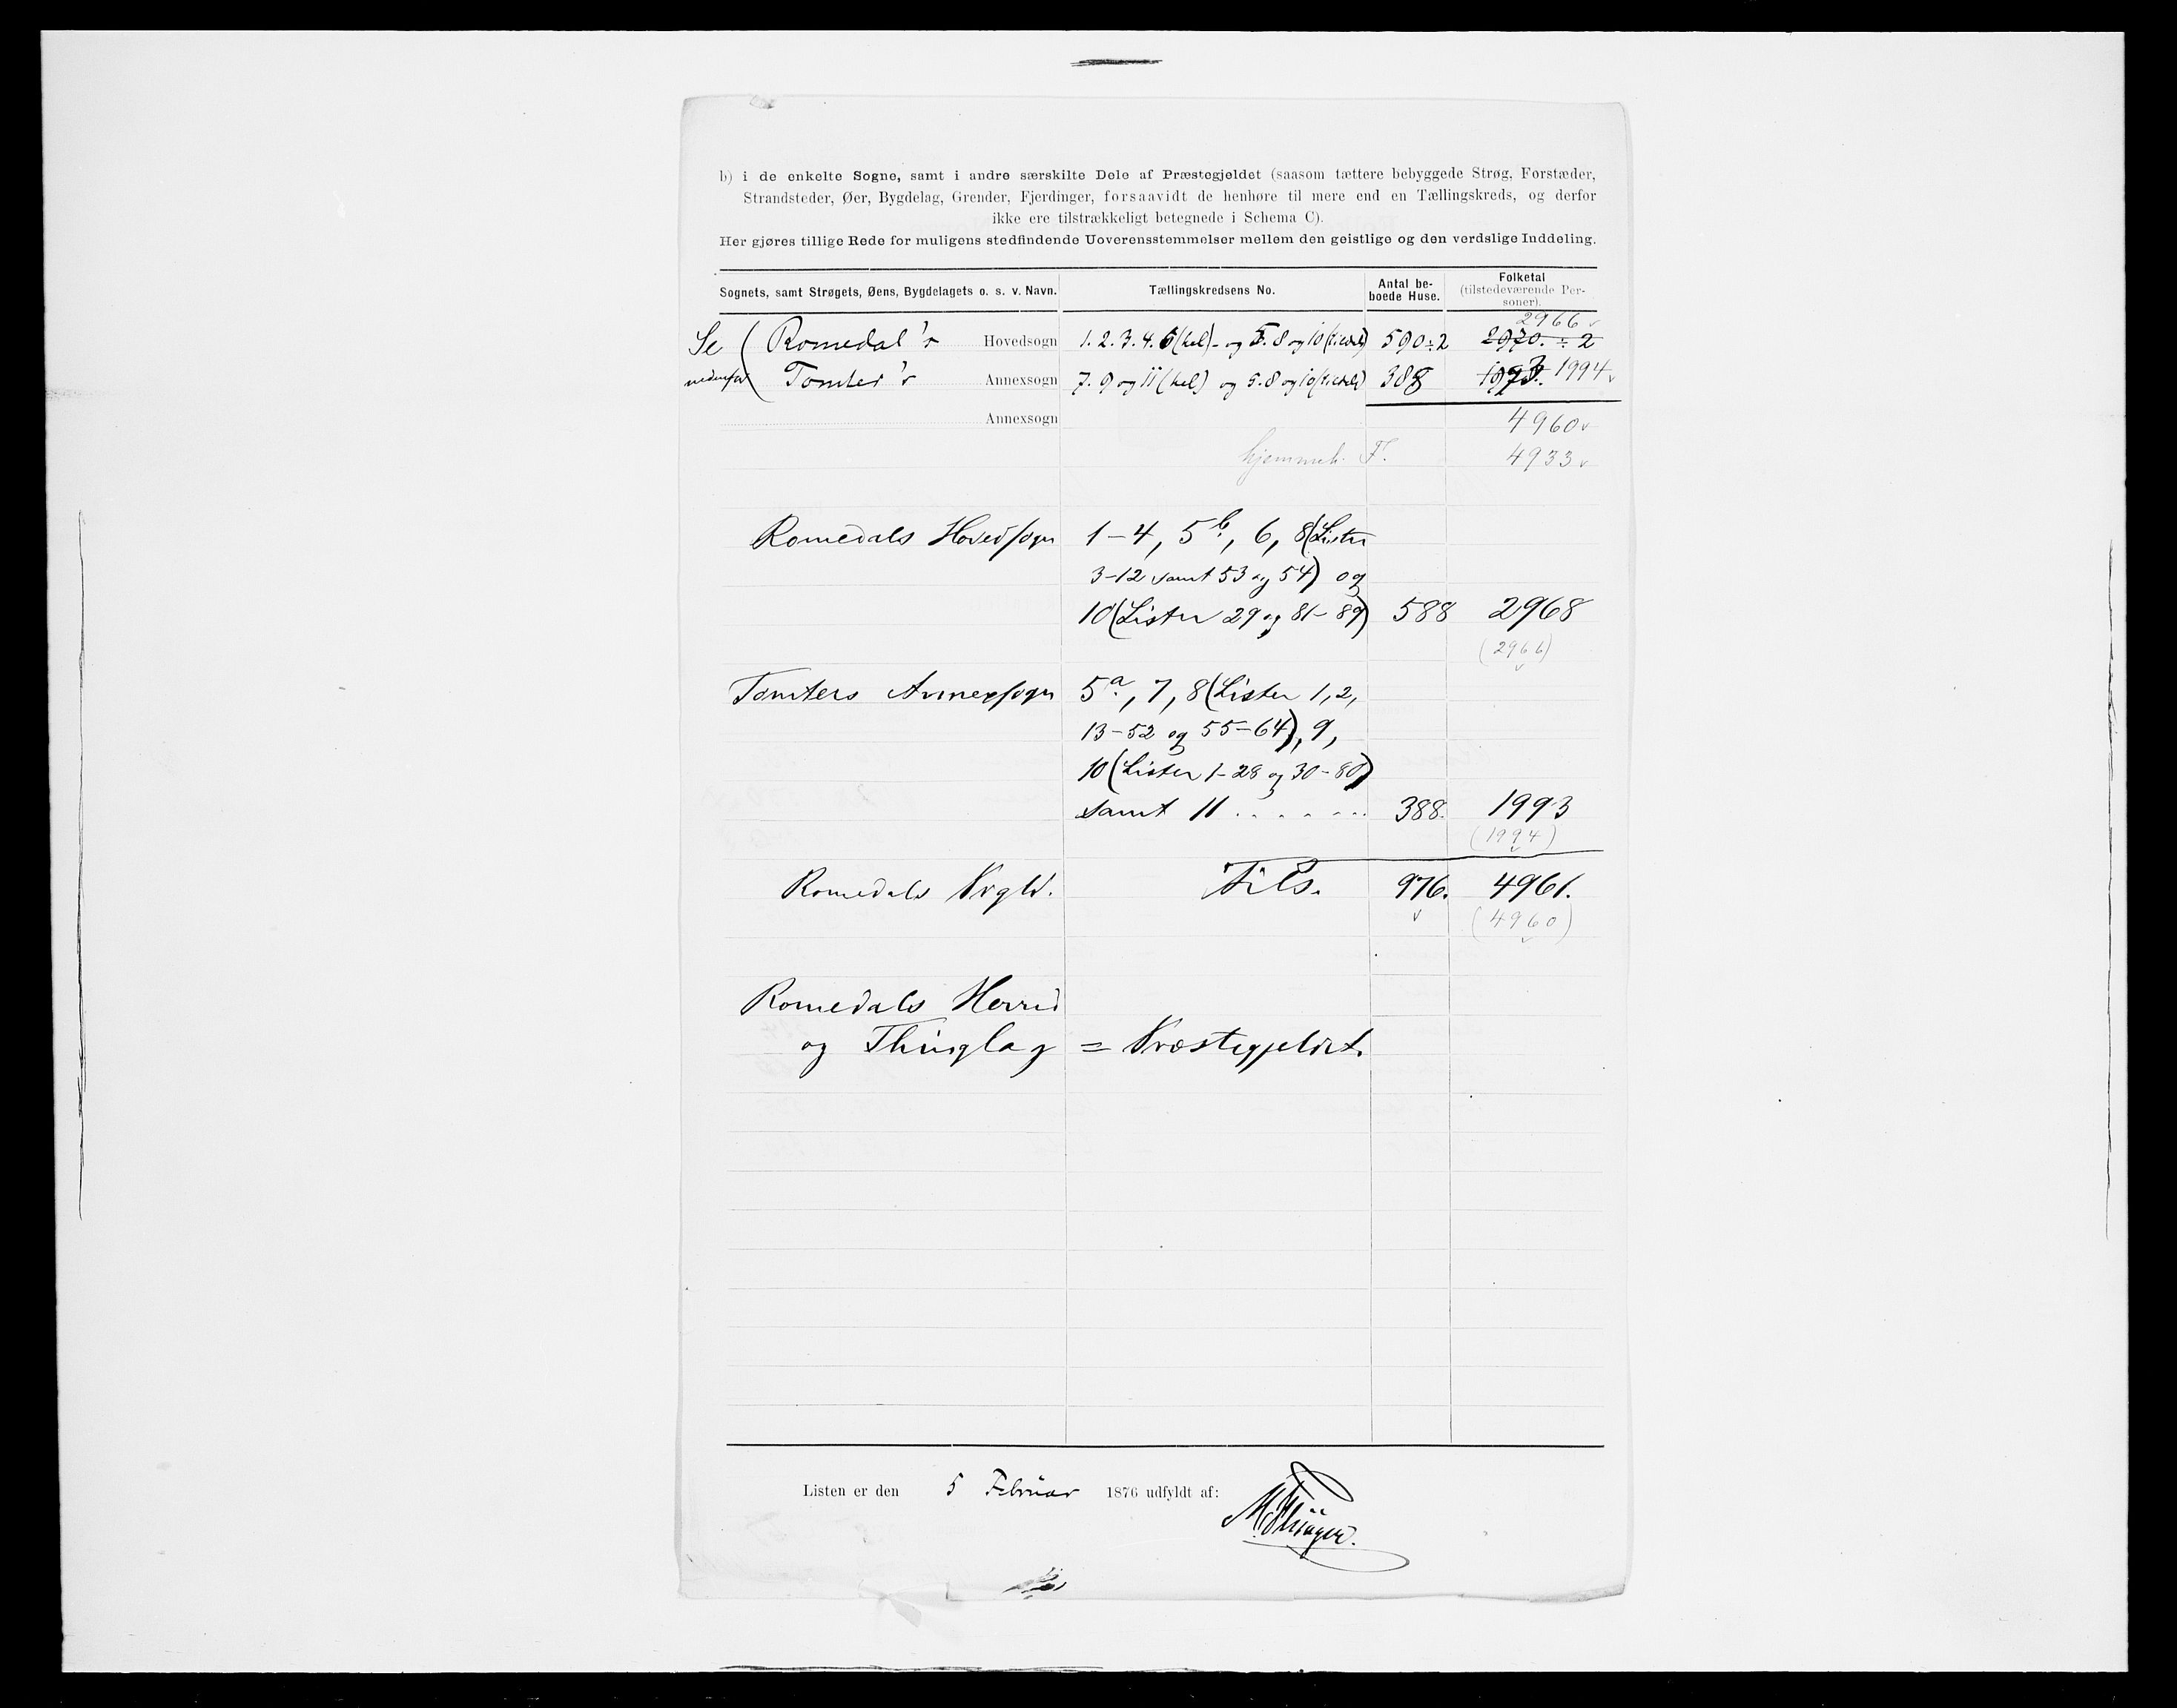 b) i de enkelte Sogne, samt i andre særskilte Dele af Præstegjeldet (saasom tættere bebyggede Strøg, Forstæder,
Strandsteder, Øer, Bygdelag, Grender, Fjerdinger, forsaavidt de henhøre til mere end en Tællingskreds, og derfor
ikke ere tilstrækkeligt betegnede i Schema C).
Her gjøres tillige Rede for muligens stedfindende Uoverensstemmelser mellem den geistlige og den verdslige Inddeling.
Sognets, samt Strøgets, Øens, Bygdelagets o. s. v. Navn. Tællingskredsens No. Antal beboede Huse. Folketal (tilstedeværende Personer).
2966
Se ( Romedal's Hovedsogn 1. 2. 3. 4. 6 (hel) - og 5. 8 og 10 (tildels) 590÷2 2970. ÷ 2
nedenfor Tomter's Annexsogn 7. 9 og 11 (hel) og 5. 8 og 10 (tildels) 388 1994
Annexsogn 4960
hjemmeh. F. 4933
Romedals Hovedsogn 1-4, 5b, 6, 8 (Lister
3-12 samt 53 og 54) og
10 (Lister 29 og 81-89) 588 2968
(2966)
Tomters Annexsogn 5a., 7, 8 (Lister 1, 2,
13-52 og 55-64), 9,
10 (Lister 1-28 og 30-80)
samt 11 . . . . . . 388. 1993
(1994)
Romedals Prgld. Tils. 976. 4961.
(4960)
Romedals Herred
og Thinglag = Præstegjeldet.
Listen er den 5 Februar 1876 udfyldt af: